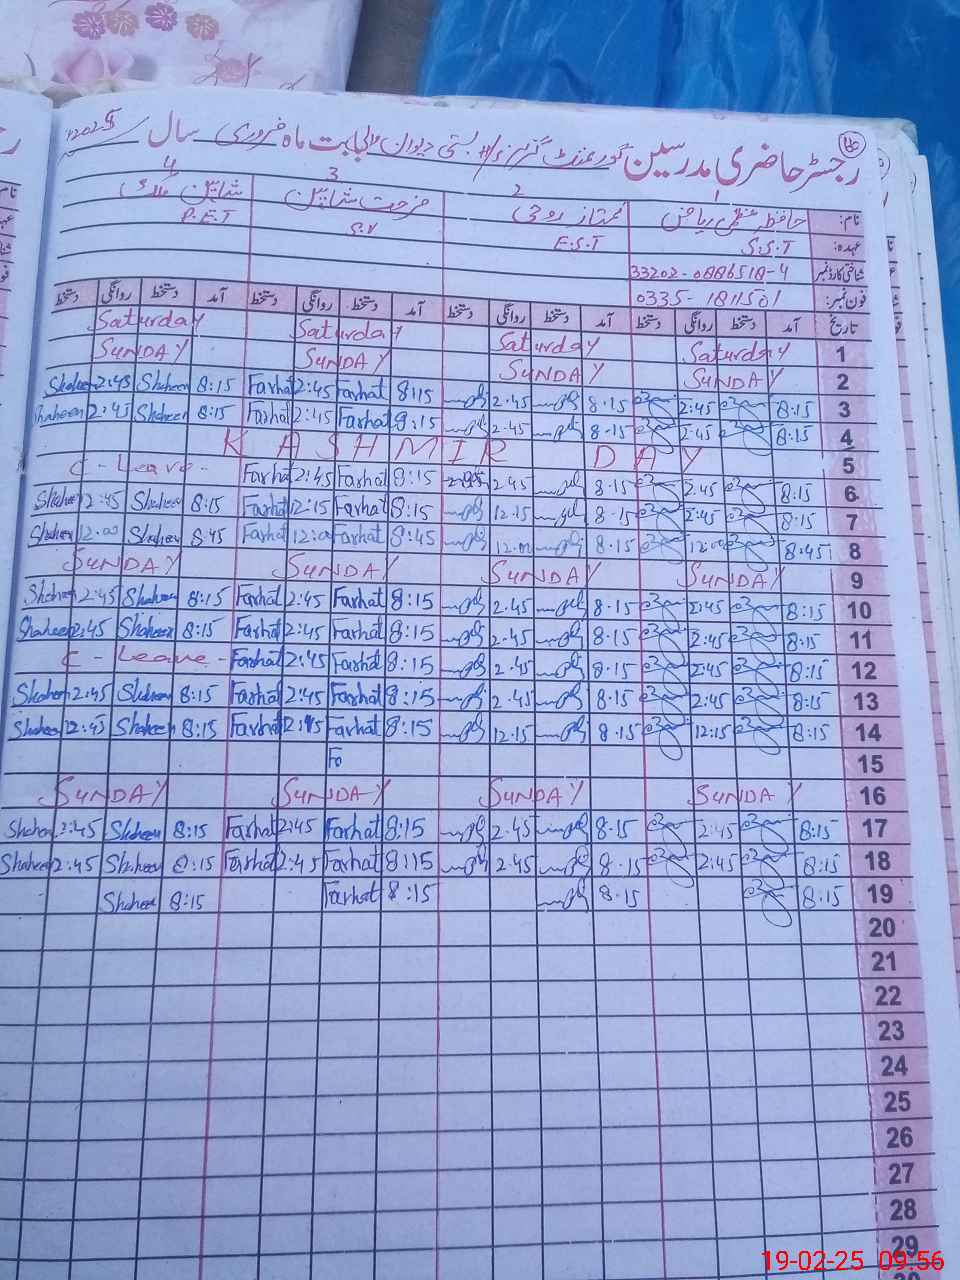 رجسٹر حاضری مدرسین گورنمنٹ گرلز بستی دیوان والی بابت ماہ فروری سال 2025
1 2 3 4
نام: حافظہ عظمیٰ ریاض ممتاز روحی فرحت شاہین شاہین ملک
عہدہ: S.S.T E.S.T S.V P.E.T
شناختی کارڈ نمبر 33202-0886518-4
فون نمبر: 0335-1811501
تاریخ آمد دستخط روانگی دستخط آمد دستخط روانگی دستخط آمد دستخط روانگی دستخط آمد دستخط روانگی دستخط
Saturday Saturday Saturday Saturday 1
SUNDAY SUNDAY SUNDAY SUNDAY 2
Shaheen 2:45 Shaheen 8:15 Farhat 2:45 Farhat 8:15 2.45 8.15 2:45 8:15 3
Shaheen 2:45 Shaheen 8:15 Farhat 2:45 Farhat 8:15 2.45 8.15 2:45 8:15 4
KASHMIR DAY 5
C-Leave- Farhat 2:45 Farhat 8:15 2.45 8.15 2:45 8:15 6
Shaheen 12:45 Shaheen 8:15 Farhat 12:15 Farhat 8:15 12.15 8.15 2:45 8:15 7
Shaheen 12:00 Shaheen 8:45 Farhat 12:00 Farhat 8:45 12.00 8.15 12:00 8:45 8
SUNDAY SUNDAY SUNDAY SUNDAY 9
Shaheen 2:45 Shaheen 8:15 Farhat 2:45 Farhat 8:15 2.45 8.15 2:45 8:15 10
Shaheen 2:45 Shaheen 8:15 Farhat 2:45 Farhat 8:15 2.45 8.15 2:45 8:15 11
C-Leave- Farhat 2:45 Farhat 8:15 2.45 8.15 2:45 8:15 12
Shaheen 2:45 Shaheen 8:15 Farhat 2:45 Farhat 8:15 2.45 8.15 2:45 8:15 13
Shaheen 12:45 Shaheen 8:15 Farhat Farhat 8:15 12.15 8.15 12:15 8:15 14
Fo 15
SUNDAY SUNDAY SUNDAY SUNDAY 16
Shaheen 2:45 Shaheen 8:15 Farhat 2:45 Farhat 8:15 2.45 8.15 2:45 8:15 17
Shaheen 2:45 Shaheen 8:15 Farhat 2:45 Farhat 8:15 2.45 8.15 2:45 8:15 18
Shaheen 8:15 Farhat 8:15 8.15 8:15 19
20
21
22
23
24
25
26
27
28
29
19-02-25 09:56